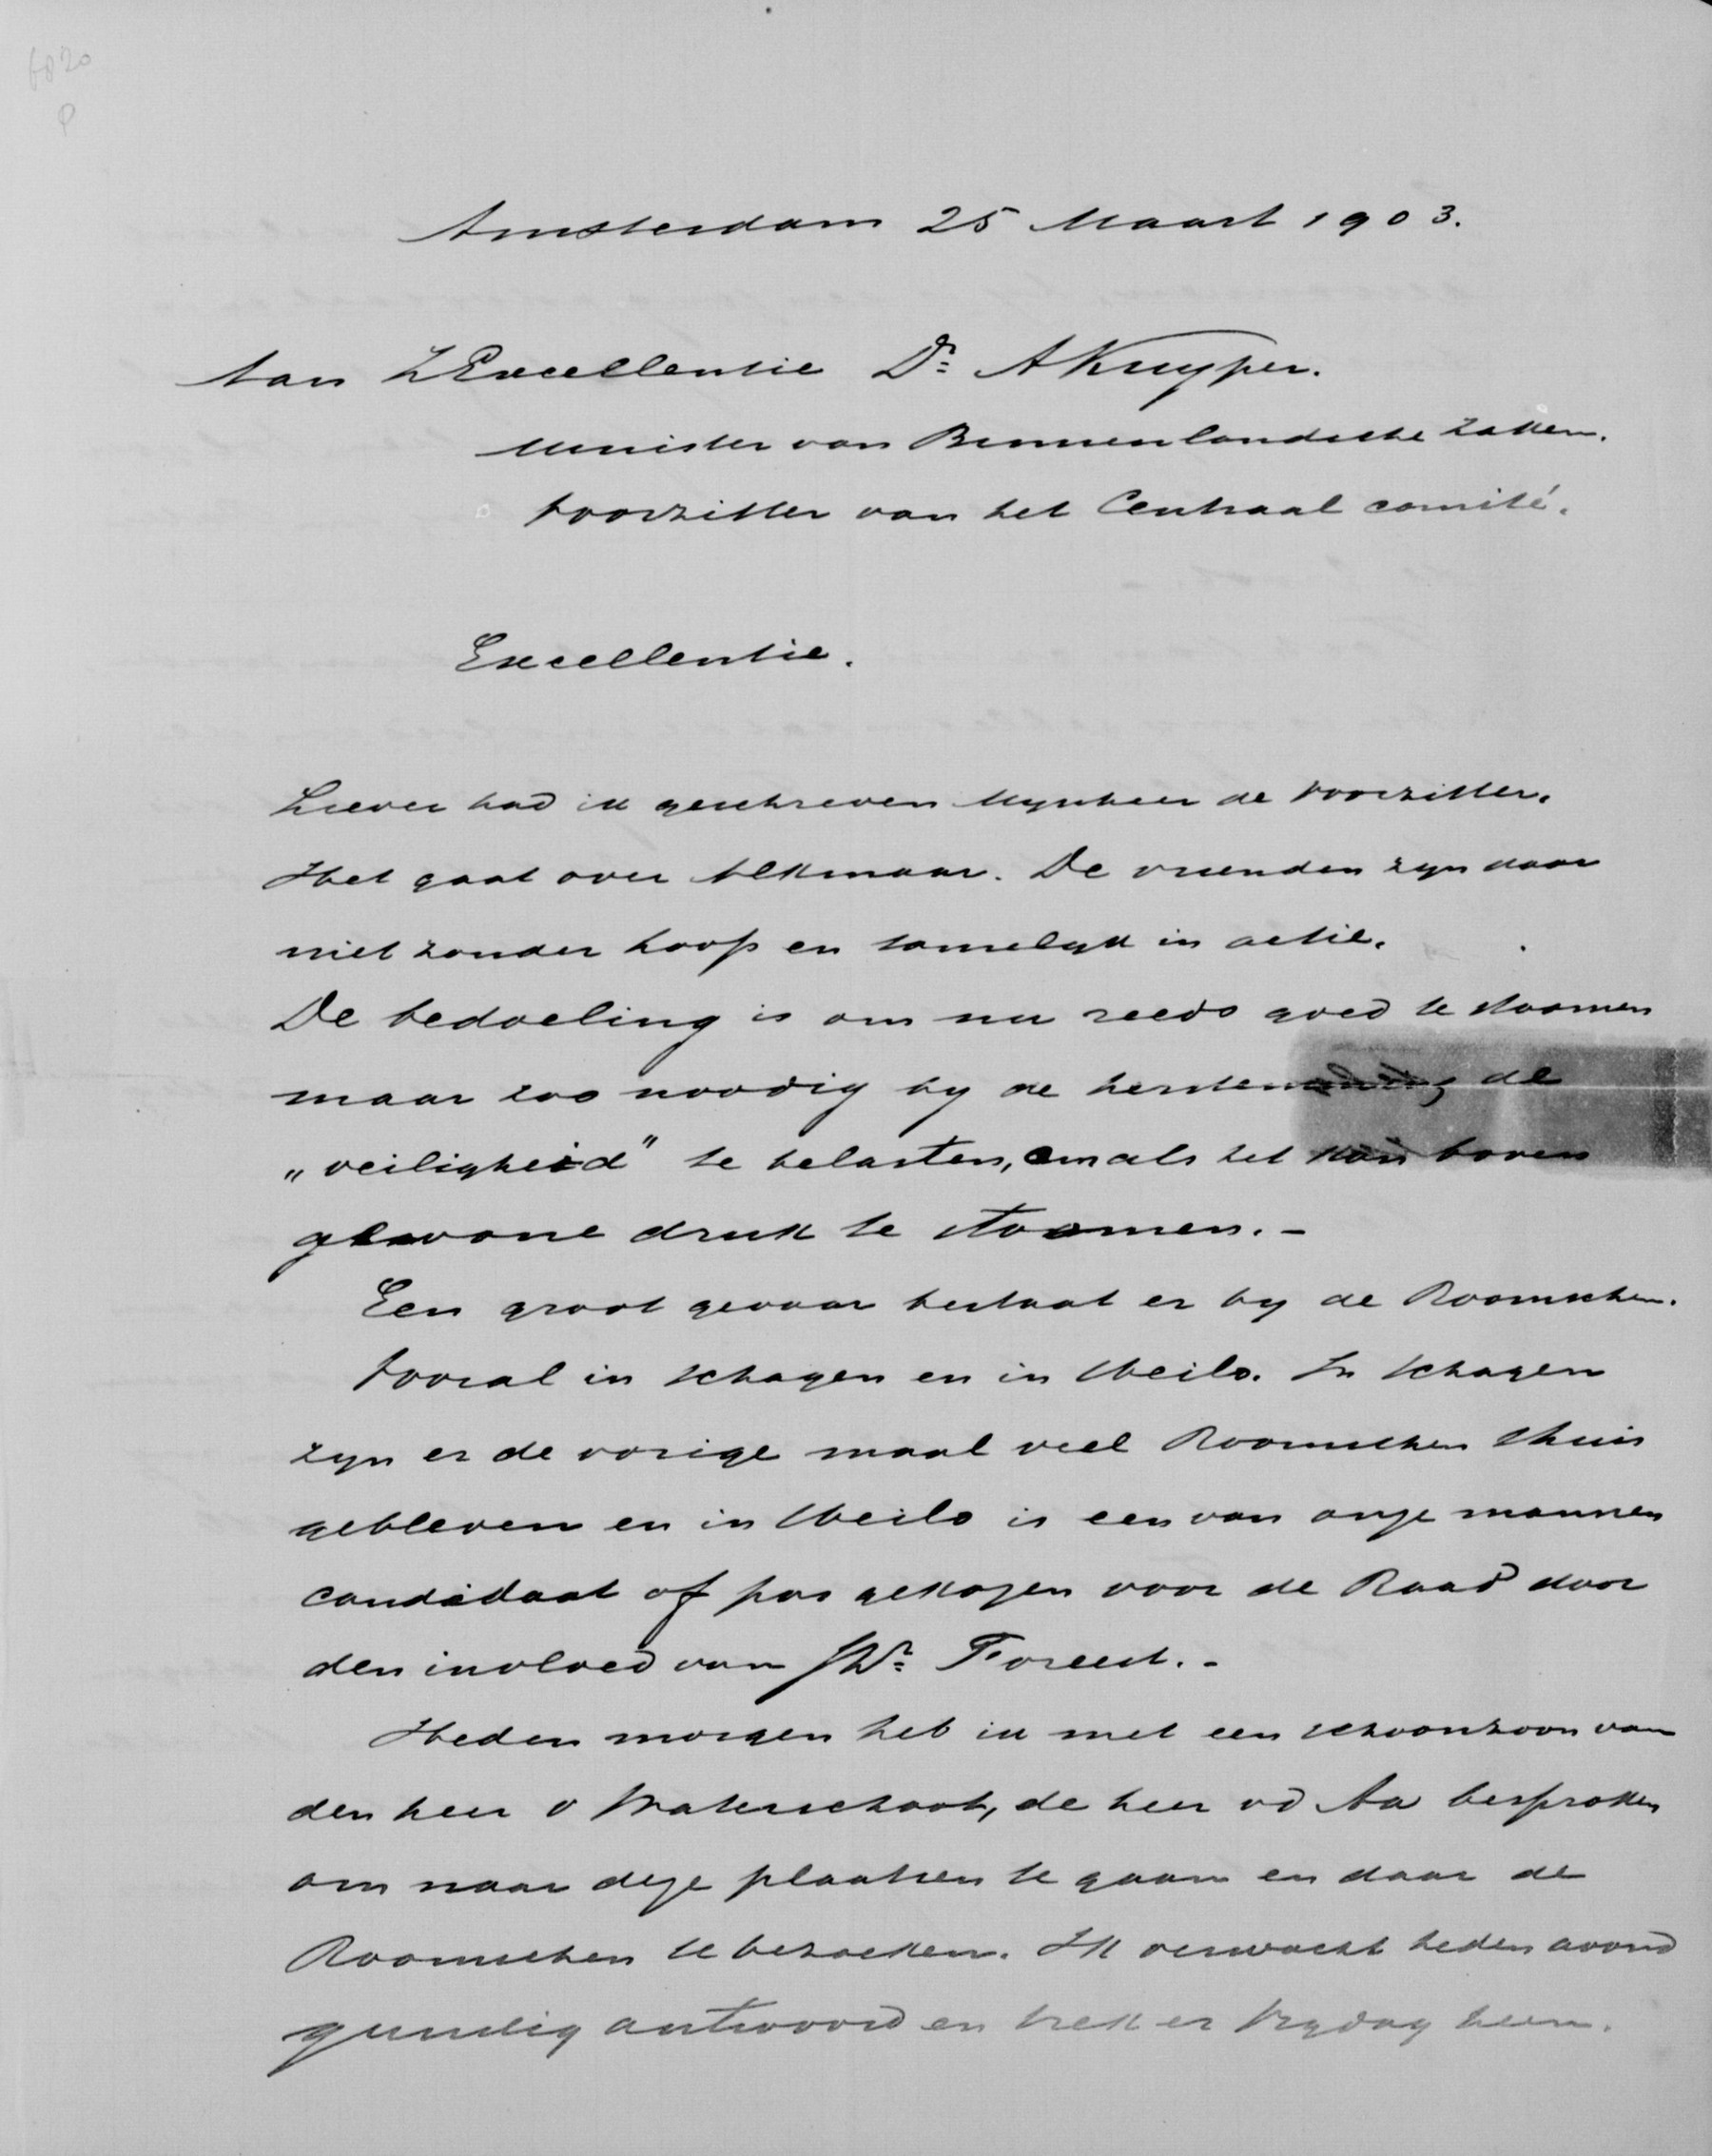 6820
P
Amsterdam 25 Maart 1903.
Aan ZExcellentie Dr. AKuyper.
Minister van Binnenlandsche Zaken.
Voorzitter van het Centraal comité.
Excellentie.
Liever had ik geschreven Mynheer de Voorzitter.
Het gaat over Alkmaar. De vrienden zyn daar
niet zonder hoop en tamelyk in actie.
De bedoeling is om nu reeds goed te stoomen
maar zoo noodig by de herstemming de
„veiligheid" te belasten, om als het kan boven
gewone druk te stoomen. -
Een groot gevaar bestaat er by de Roomschen.
Vooral in Schagen en in Heilo. In Schagen
zyn er de vorige maal veel Roomschen thuis
gebleven en in Heilo is een van onze mannen
candidaat of pas gekozen voor de Raad door
den invloed van Jhr. Foreest. -
Heden morgen heb ik met een schoonzoon van
den heer v Waterschoot, de heer vd Aa besproken
om naar deze plaatsen te gaan en daar de
Roomschen te bezoeken. Ik verwacht heden avond
gunstig antwoord en trek er Vrydag heen.